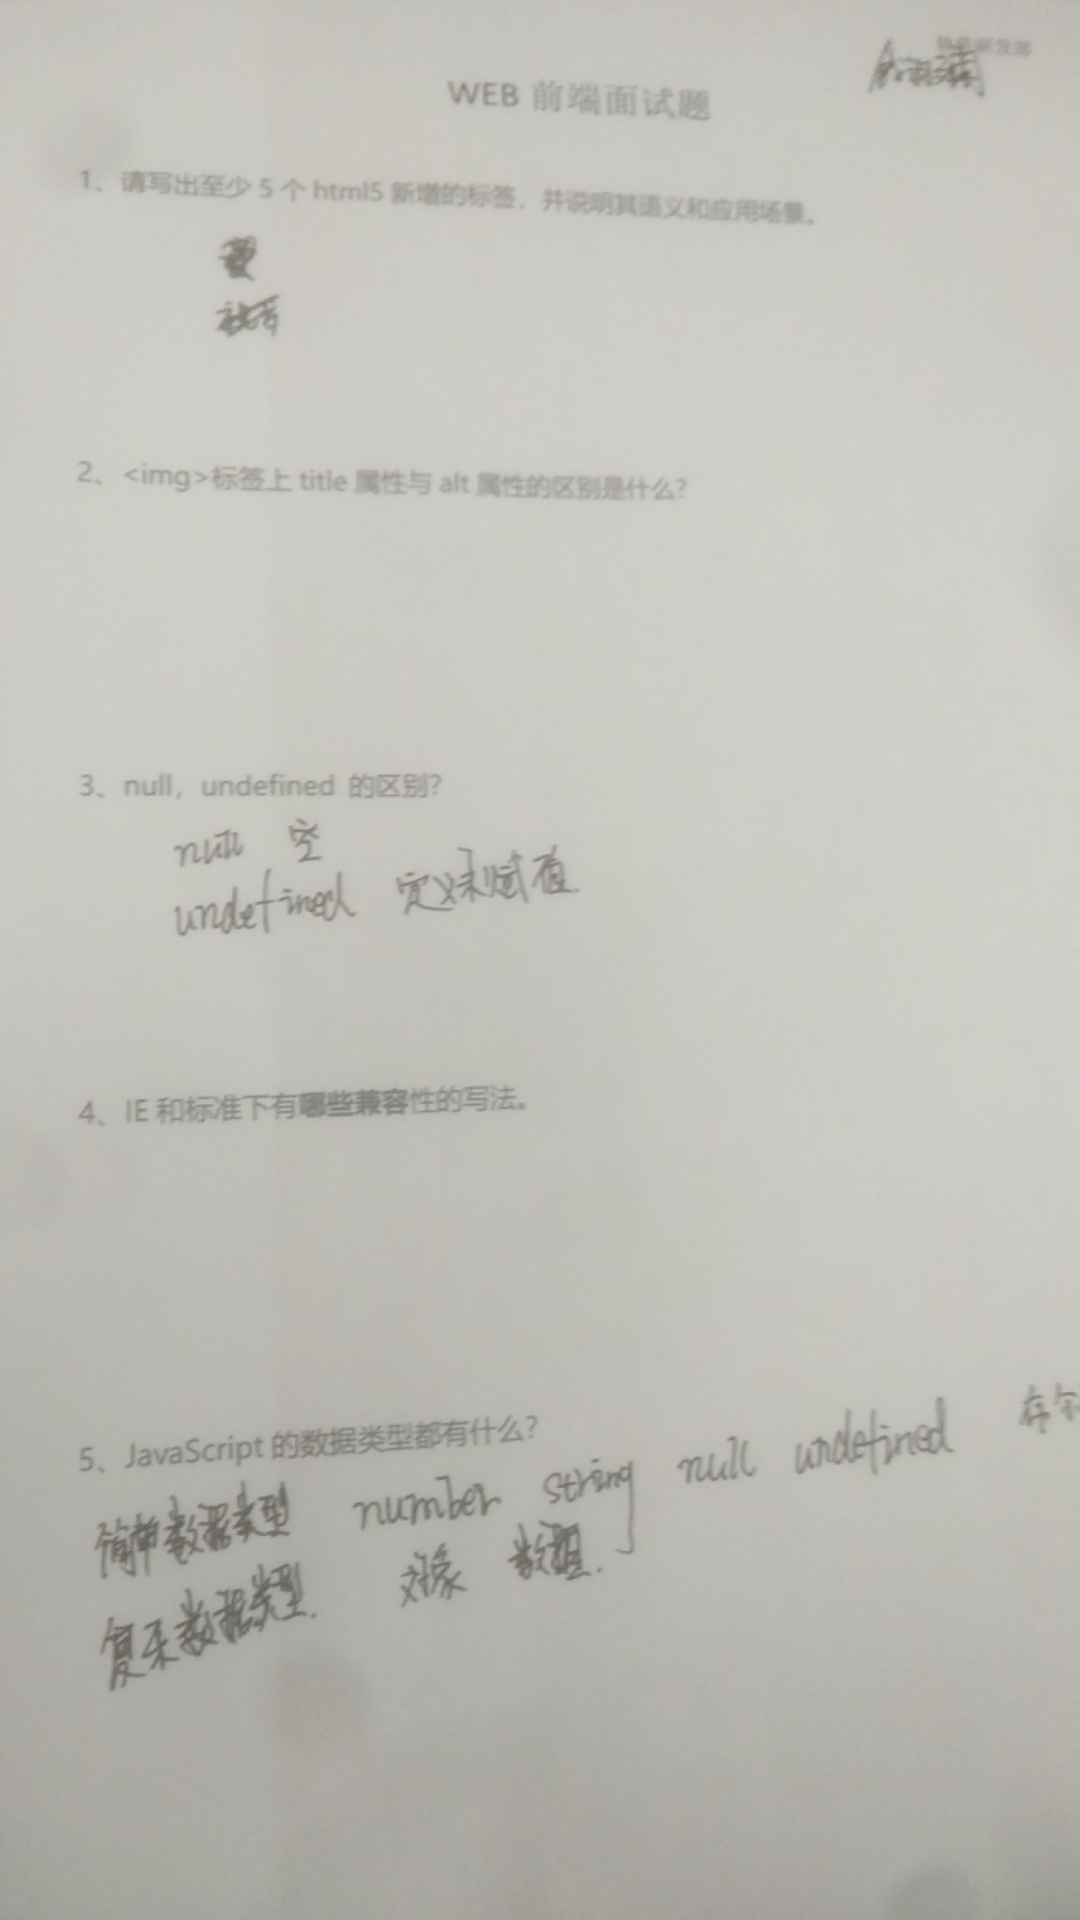 研发部
WEB 前端面试题
1、请写出至少 5 个 html5 新增的标签，并说明其语义和应用场景。
2、<img>标签上 title 属性与 alt 属性的区别是什么？
3、null，undefined 的区别？
null 空
undefined 定义未赋值.
4、IE 和标准下有哪些兼容性的写法。
5、JavaScript 的数据类型都有什么？
简单数据类型 number string null undefined
复杂数据类型. 对象 数组.